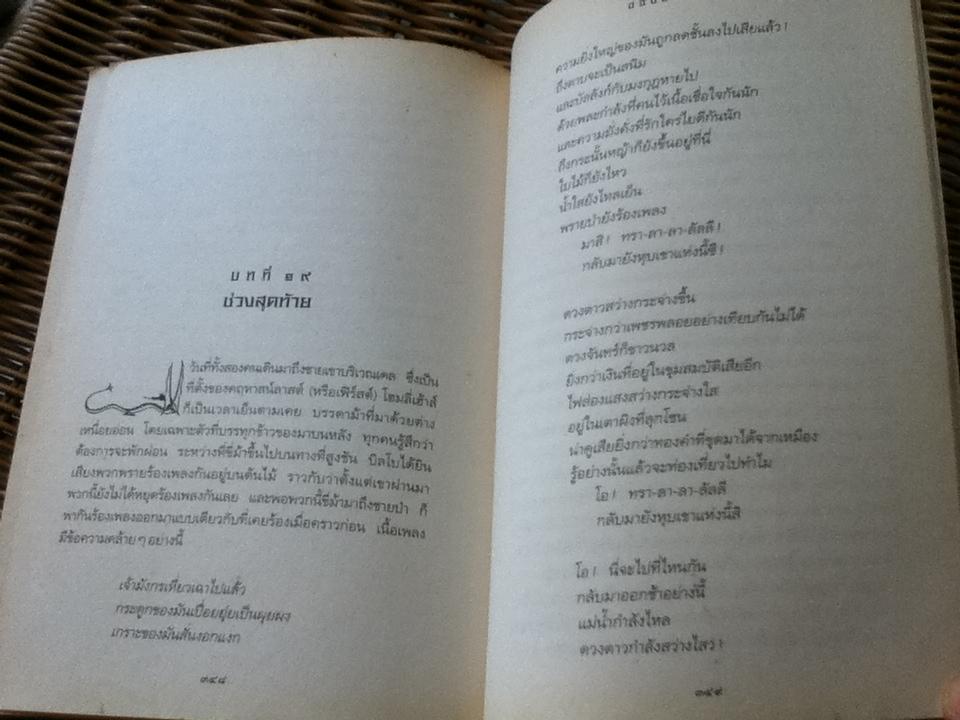 บทที่ ๑๙
ช่วงสุดท้าย
วันที่ทั้งสองคนเดินมาถึงชายเขาบริเวณเดล ซึ่งเป็น
ที่ตั้งของคฤหาสน์ลาสต์ (หรือเฟิร์สต์) โฮมลี่เฮ้าส์
ก็เป็นเวลาเย็นตามเคย บรรดาม้าที่มาด้วยต่าง
เหนื่อยอ่อน โดยเฉพาะตัวที่บรรทุกข้าวของมาบนหลัง ทุกคนรู้สึกว่า
ต้องการจะพักผ่อน ระหว่างที่ขี่ม้าขึ้นไปบนทางที่สูงชัน บิลโบได้ยิน
เสียงพวกพรายร้องเพลงกันอยู่บนต้นไม้ ราวกับว่าตั้งแต่เขาผ่านมา
พวกนี้ยังไม่ได้หยุดร้องเพลงกันเลย และพอพวกนี้ขี่ม้ามาถึงชายป่า ก็
พากันร้องเพลงออกมาแบบเดียวกับที่เคยร้องเมื่อคราวก่อน เนื้อเพลง
มีข้อความคล้ายๆ อย่างนี้
เจ้ามังกรเหี่ยวเฉาไปแล้ว
กระดูกของมันเปื่อยยุ่ยเป็นผุยผง
เกราะของมันสั่นงอกแงก
๓๔๘
ความยิ่งใหญ่ของมันถูกลดชั้นลงไปเสียแล้ว!
ถึงดาบจะเป็นสนิม
และบัลลังก์กับมงกุฎหายไป
ด้วยพละกำลังที่คนไว้เนื้อเชื่อใจกันนัก
และความมั่งคั่งที่รักใคร่ไยดีกันนัก
ถึงกระนั้นหญ้าก็ยังขึ้นอยู่ที่นี่
ใบไม้ก็ยังไหว
น้ำใสยังไหลเย็น
พรายป่ายังร้องเพลง
มาสิ! ทรา-ลา-ลา-ลัลลี!
กลับมายังหุบเขาแห่งนี้ซี!
ดวงดาวสว่างกระจ่างขึ้น
กระจ่างกว่าเพชรพลอยอย่างเทียบกันไม่ได้
ดวงจันทร์ก็ขาวนวล
ยิ่งกว่าเงินที่อยู่ในขุมสมบัติเสียอีก
ไฟส่องแสงสว่างกระจ่างใส
อยู่ในเตาผิงที่ลุกโชน
น่าดูเสียยิ่งกว่าทองคำที่ขุดมาได้จากเหมือง
รู้อย่างนั้นแล้วจะท่องเที่ยวไปทำไม
โอ! ทรา-ลา-ลา-ลัลลี
กลับมายังหุบเขาแห่งนี้สิ
โอ! นี่จะไปที่ไหนกัน
กลับมาออกช้าอย่างนี้
แม่น้ำกำลังไหล
ดวงดาวกำลังสว่างไสว!
๓๔๙